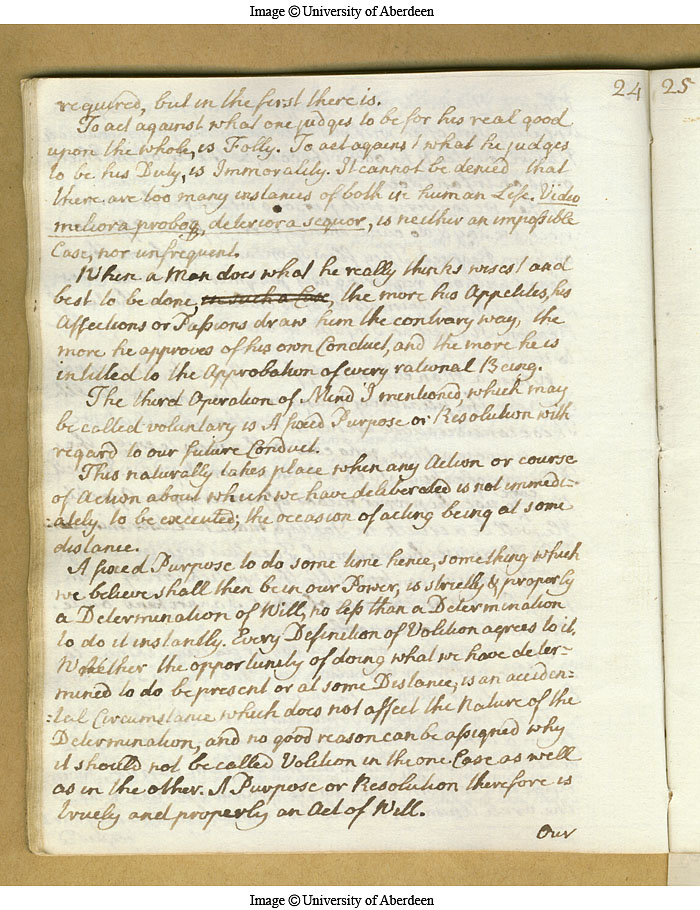 Image © University of Aberdeen
24 25
required, but in the first there is.
To act against what one judges to be for his real good
upon the whole, is Folly. To act against what he judges
to be his Duty, is Immorality. It cannot be denied that
there are too many instances of both in human Life. Video
meliora proboq, deteriora sequor, is neither an impossible
Case, nor unfrequent.
When a Man does what he really thinks wisest and
best to be done, in such a Case, the more his Appetites, his
Affections or Passions draw him the contrary way, the
more he approves of his own Conduct, and the more he is
intitled to the Approbation of every rational Being.
The third Operation of Mind I mentioned, which may
be called voluntary is A fixed Purpose or Resolution with
regard to our future Conduct.
This naturally takes place when any Action or course
of Action about which we have deliberated is not immedi=
=ately to be executed; the occasion of acting being at some
distance.
A fixed Purpose to do some time hence, something which
we believe shall then be in our Power, is strictly & properly
a Determination of Will, no less than a Determination
to do it instantly. Every Definition of Volition agrees to it.
Whether the opportunity of doing what we have deter=
mined to do be present or at some Distance, is an acciden=
=tal Circumstance which does not affect the Nature of the
Determination, and no good reason can be assigned why
it should not be called Volition in the one Case as well
as in the other. A Purpose or Resolution therefore is
truely and properly an Act of Will.
Our
Image © University of Aberdeen